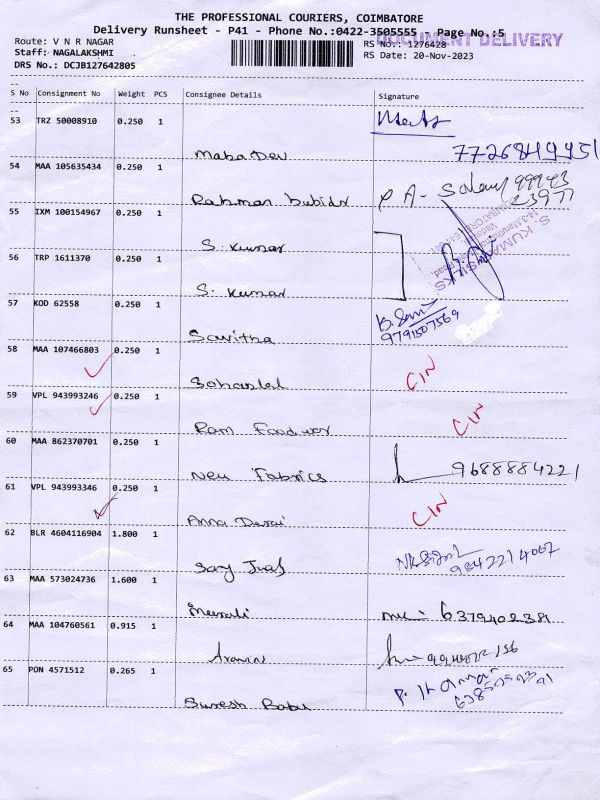 THE PROFESSIONAL COURIERS, COIMBATORE
Delivery Runsheet - P41 - Phone No.:0422-3505555 Page No.:5
DOCUMENT DELIVERY
Route: V N R NAGAR RS No.: 1276428
Staff: NAGALAKSHMI RS Date: 20-Nov-2023
DRS No.: DCJB127642805
S No Consignment No Weight PCS Consignee Details Signature
53 TRZ 50008910 0.250 1
Mahadev 7726849951
54 MAA 105635434 0.250 1
Rahman
55 IXM 100154967 0.250 1
S. Kumar
56 TRP 1611370 0.250 1
S. Kumar
57 KOD 62558 0.250 1
Savitha 9791507569
58 MAA 107466803 0.250 1
Sohanlal CIN
59 VPL 943993246 0.250 1
Ram CIN
60 MAA 862370701 0.250 1
New Fabrics 9688884221
61 VPL 943993346 0.250 1
Anna Durai CIN
62 BLR 4604116904 1.800 1
9842214067
63 MAA 573024736 1.600 1
Murali 637940239
64 MAA 104760561 0.915 1
Aravin
65 PON 4571512 0.265 1
Suresh Babu